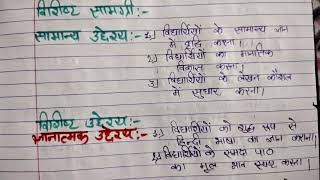 विशिष्ट सामग्री:-
सामान्य उद्देश्य:- 1.) विद्यार्थियों के सामान्य ज्ञान
में वृद्धि करना।
2.) विद्यार्थियों का मानसिक
विकास करना।
3.) विद्यार्थियों के लेखन कौशल
में सुधार करना।
विशिष्ट उद्देश्य:-
ज्ञानात्मक उद्देश्य:- 1.) विद्यार्थियों को शुद्ध रूप से
हिन्दी भाषा का ज्ञान कराना।
2.) विद्यार्थियों के समक्ष पाठ
का मूल भाव स्पष्ट कराना।